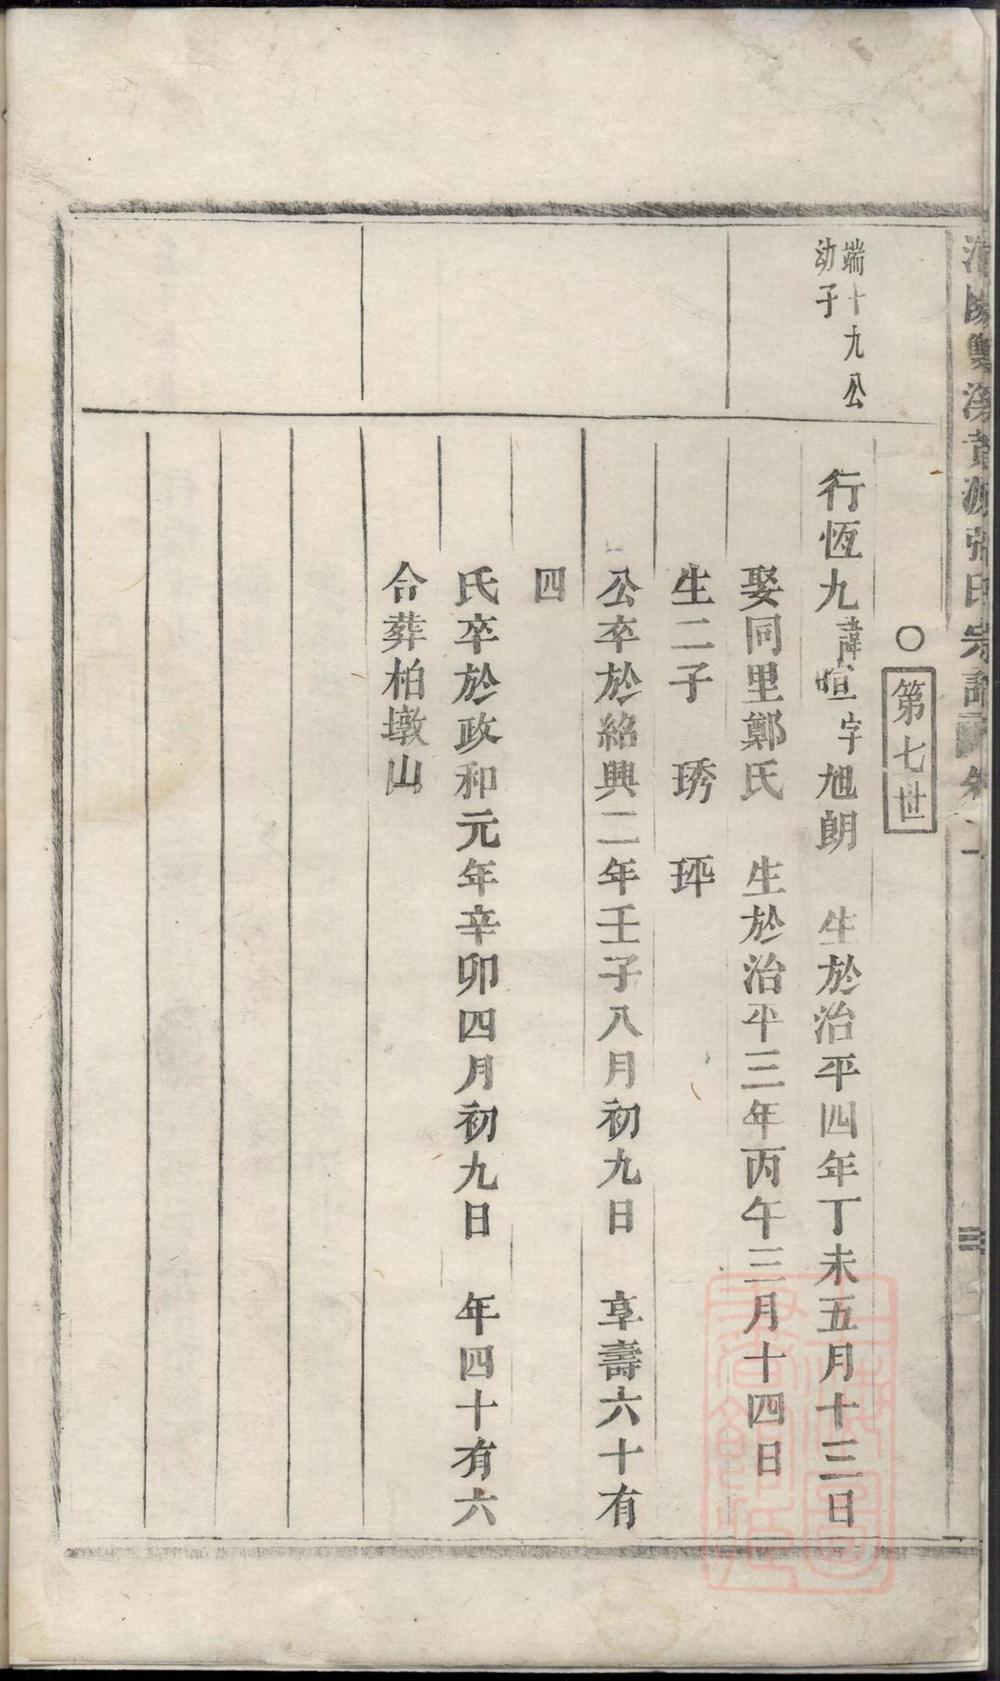 第七世
端十九公
幼子
行恆九諱暄字旭朗 生於治平四年丁未五月十三日
娶同里鄭氏 生於治平三年丙午三月十四日
生二子 琇 玶
公卒於紹興二年壬子八月初九日 享壽六十有
四
氏卒於政和元年辛卯四月初九日 年四十有六
合葬柏墩山